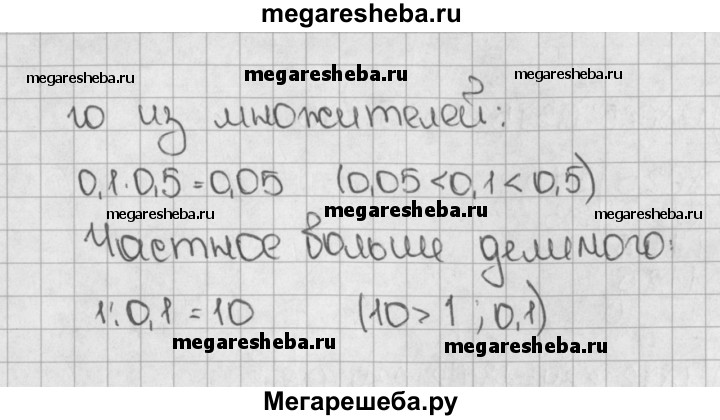 megaresheba.ru
megaresheba.ru megaresheba.ru megaresheba.ru
го из множителей:
0,1·0,5=0,05 (0,05<0,1<0,5)
megaresheba.ru megaresheba.ru megaresheba.ru
Частное больше делимого:
1:0,1=10 (10>1;0,1)
megaresheba.ru megaresheba.ru
Мегарешеба.ру